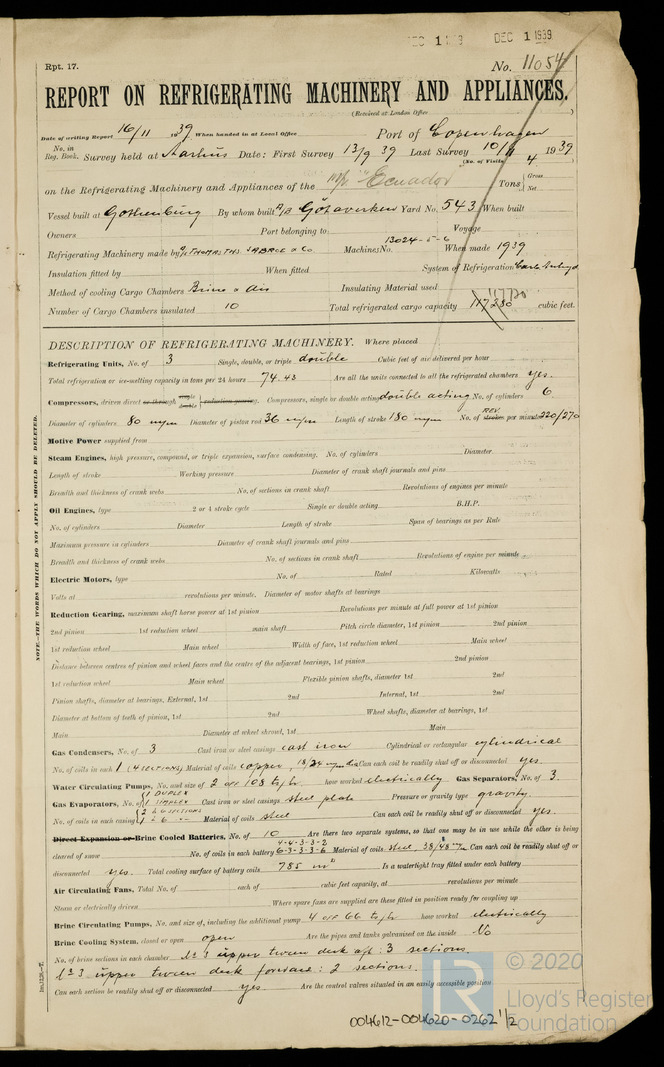 DEC 1 1939
Rpt. 17.
No. 11054
REPORT ON REFRIGERATING MACHINERY AND APPLIANCES.
(Received at London Office
Date of writing Report 16/11 1939. When handed in at Local Office Port of Copenhagen
No. in Reg. Book. Survey held at Aarhus Date: First Survey 13/9 39 Last Survey 10/11 1939
(No. of Visits 4
on the Refrigerating Machinery and Appliances of the M/V "Ecuador" Tons Gross Net
Vessel built at Gothenburg By whom built A/B Götaverken Yard No. 543 When built
Owners Port belonging to Voyage
Refrigerating Machinery made by A/S THOMAS THS. SABROE & Co Machines No. 13024-5-6 When made 1939
Insulation fitted by When fitted System of Refrigeration
Method of cooling Cargo Chambers Brine & Air Insulating Material used
Number of Cargo Chambers insulated 10 Total refrigerated cargo capacity cubic feet.
DESCRIPTION OF REFRIGERATING MACHINERY. Where placed
Refrigerating Units, No. of 3 Single, double, or triple double Cubic feet of air delivered per hour
Total refrigeration or ice-melting capacity in tons per 24 hours 74.43 Are all the units connected to all the refrigerated chambers yes.
Compressors, driven direct or through single double reduction gearing. Compressors, single or double acting double acting No. of cylinders 6.
Diameter of cylinders 80 m/m Diameter of piston rod 36 m/m Length of stroke 180 m/m No. of strokes REV. per minute 220/270
Motive Power supplied from
Steam Engines, high pressure, compound, or triple expansion, surface condensing. No. of cylinders Diameter
Length of stroke Working pressure Diameter of crank shaft journals and pins
Breadth and thickness of crank webs No. of sections in crank shaft Revolutions of engines per minute
Oil Engines, type 2 or 4 stroke cycle Single or double acting B.H.P.
No. of cylinders Diameter Length of stroke Span of bearings as per Rule
Maximum pressure in cylinders Diameter of crank shaft journals and pins
Breadth and thickness of crank webs No. of sections in crank shaft Revolutions of engine per minute
Electric Motors, type No. of Rated Kilowatts
Volts at revolutions per minute. Diameter of motor shafts at bearings
Reduction Gearing, maximum shaft horse power at 1st pinion Revolutions per minute at full power at 1st pinion
2nd pinion 1st reduction wheel main shaft Pitch circle diameter, 1st pinion 2nd pinion
1st reduction wheel Main wheel Width of face, 1st reduction wheel Main wheel
Distance between centres of pinion and wheel faces and the centre of the adjacent bearings, 1st pinion 2nd pinion
1st reduction wheel Main wheel Flexible pinion shafts, diameter 1st 2nd
Pinion shafts, diameter at bearings, External, 1st 2nd Internal, 1st 2nd
Diameter at bottom of teeth of pinion, 1st 2nd Wheel shafts, diameter at bearings, 1st
Main Diameter at wheel shroud, 1st Main
Gas Condensers, No. of 3 Cast iron or steel casings cast iron Cylindrical or rectangular cylindrical
No. of coils in each 1 (4 SECTIONS) Material of coils copper, 18/24 m/m dia Can each coil be readily shut off or disconnected yes.
Water Circulating Pumps, No. and size of 2 off 108 ts/hr how worked electrically Gas Separators, No. of 3.
Gas Evaporators, No. of 2 DUPLEX 1 SIMPLEX Cast iron or steel casings steel plate Pressure or gravity type gravity
No. of coils in each casing 2 à 6 SECTIONS 1 à 6 Material of coils steel Can each coil be readily shut off or disconnected yes.
Direct Expansion or Brine Cooled Batteries, No. of 10 Are there two separate systems, so that one may be in use while the other is being
cleared of snow No. of coils in each battery 4-4-3-3-2 6-3-3-3-6 Material of coils steel, 38/48 m/m Can each coil be readily shut off or
disconnected yes. Total cooling surface of battery coils 785 m² Is a watertight tray fitted under each battery
Air Circulating Fans, Total No. of each of cubic feet capacity, at revolutions per minute
Steam or electrically driven Where spare fans are supplied are these fitted in position ready for coupling up
Brine Circulating Pumps, No. and size of, including the additional pump 4 off 66 ts/hr how worked electrically
Brine Cooling System, closed or open open Are the pipes and tanks galvanised on the inside No
No. of brine sections in each chamber No 3 upper tween deck aft: 3 sections.
No 3 upper tween deck forward: 2 sections.
Can each section be readily shut off or disconnected yes Are the control valves situated in an easily accessible position
NOTE.—THE WORDS WHICH DO NOT APPLY SHOULD BE DELETED.
© 2020
LR
Lloyd's Register
Foundation
004612-004620-0262 1/2